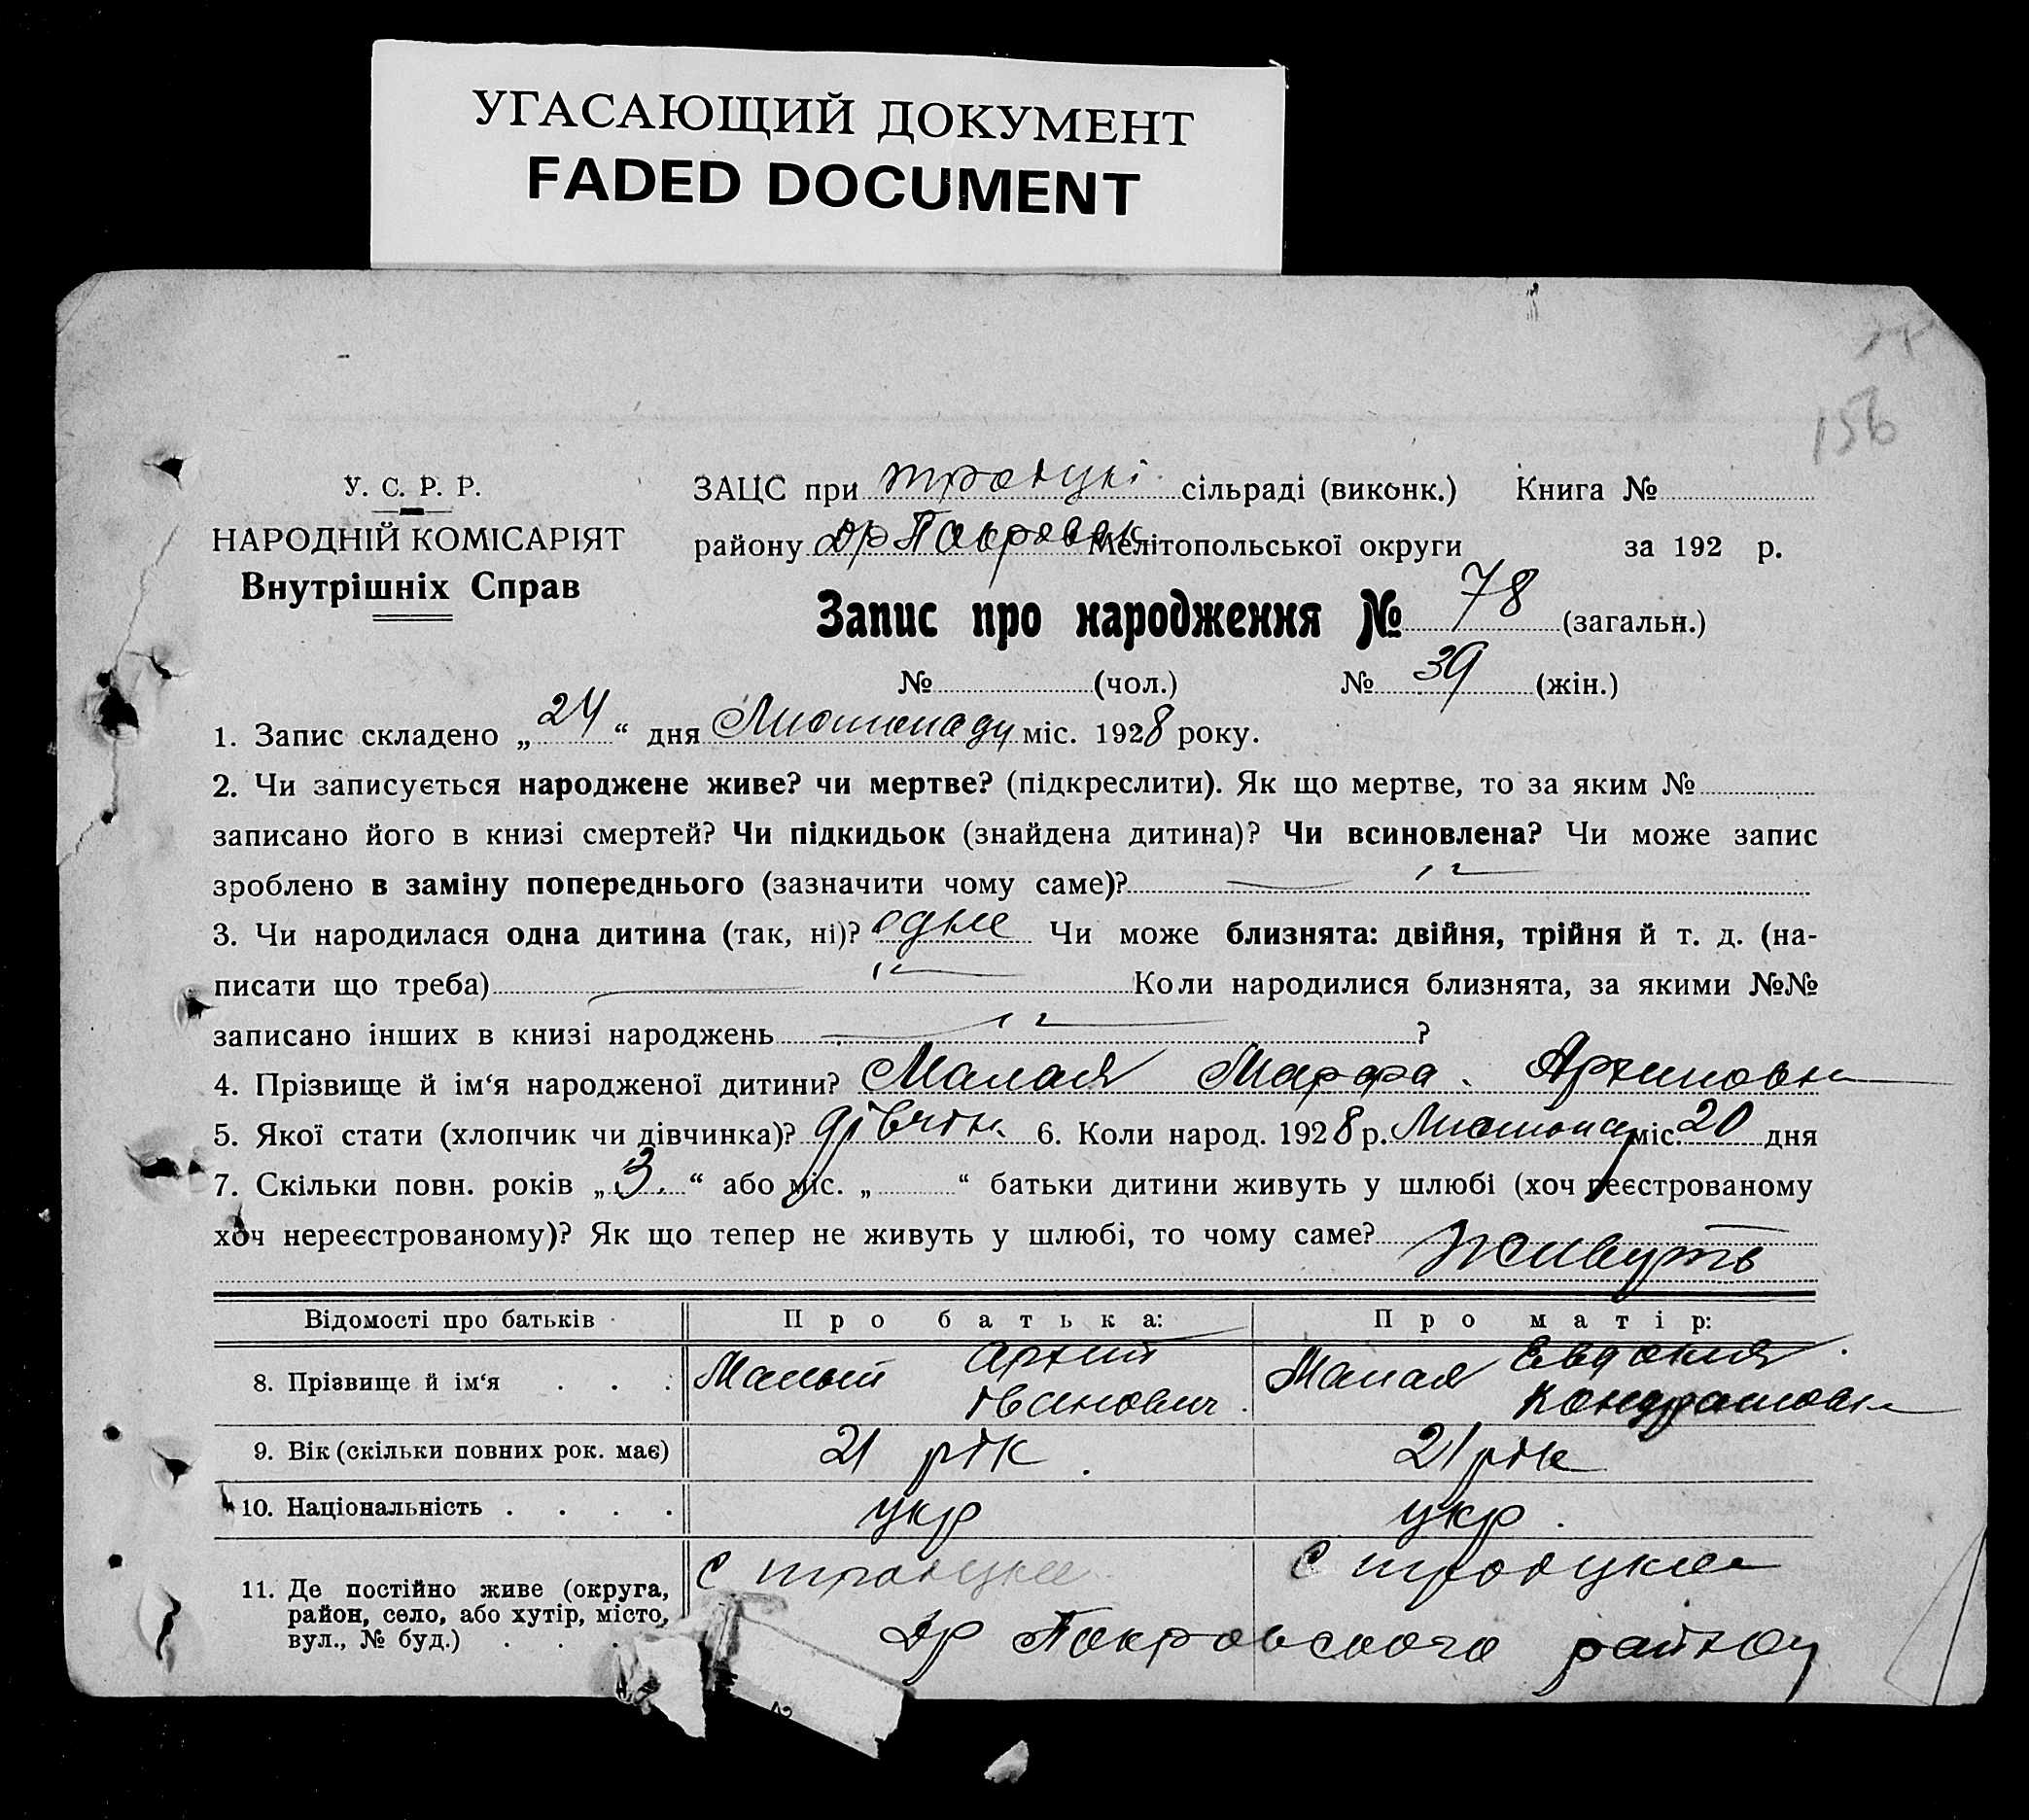 УГАСАЮЩИЙ ДОКУМЕНТ
FADED DOCUMENT
156
У. С. Р. Р.
НАРОДНІЙ КОМІСАРІЯТ
Внутрішніх Справ
ЗАЦС при троіцкі сільраді (виконк.) Книга №
району др Покровск Мелітопольської округи за 192 р.
Запис про народження № 78 (загальн.)
№ (чол.) № 39 (жін.)
1. Запис складено „24“ дня Листопаду міс. 1928 року.
2. Чи записується народжене живе? чи мертве? (підкреслити). Як що мертве, то за яким №
записано його в книзі смертей? Чи підкидьок (знайдена дитина)? Чи всиновлена? Чи може запис
зроблено в заміну попереднього (зазначити чому саме)?
3. Чи народилася одна дитина (так, ні)? одне Чи може близнята: двійня, трійня й т. д. (на-
писати що треба) Коли народилися близнята, за якими №№
записано інших в книзі народжень ?
4. Прізвище й ім‘я народженої дитини? Малая Марфа Архиповна
5. Якої стати (хлопчик чи дівчинка)? дівчін. 6. Коли народ. 1928 р. Листопад міс. 20 дня
7. Скільки повн. років „3.“ або міс. „ “ батьки дитини живуть у шлюбі (хоч реєстрованому
хоч нереєстрованому)? Як що тепер не живуть у шлюбі, то чому саме? Живуть
Відомості про батьків Про батька: Про матір:
8. Прізвище й ім‘я . . . Малый Архип Іванович. Малая Евдокия Кондратовна
9. Вік (скільки повних рок. має) 21 рік. 21 рік
10. Національність . . . . укр укр.
11. Де постійно живе (округа, С троіцке С троіцке
район, село, або хутір, місто,
вул., № буд.) . . . др Покровского району